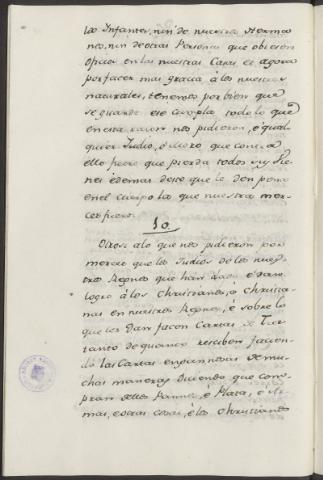 los Infantes, nin de nuestros Herma
nos, nin de otras Personas que obiesen
oficios en las nuestras Casas é agora
por facer mas gracia á los nuestros
naturales, tenemos por bien que
se guarde é se cumpla todo lo que
en esta razon nos pidieron, é qual
quier Judio, ó Moro que contra
ello fuere que pierda todos sus Bie
nes é demas desto que le den pena
en el cuerpo la que nuestra mer
ced fuere.
10
Otrosi a lo que nos pidieron por
merced que los Judios de los nues
tros Regnos que han dado é dan
logro á los Christianos, ó Christia
nas en nuestros Regnos, é sobre lo
que les dan facen Cartas de
tanto de quanto resciben facien
do las Cartas engannosas de mu
chas maneras diciendo que com
pran dellos Pannos, é Plata, é Ar
mas, e otras cosas, é los Christianos